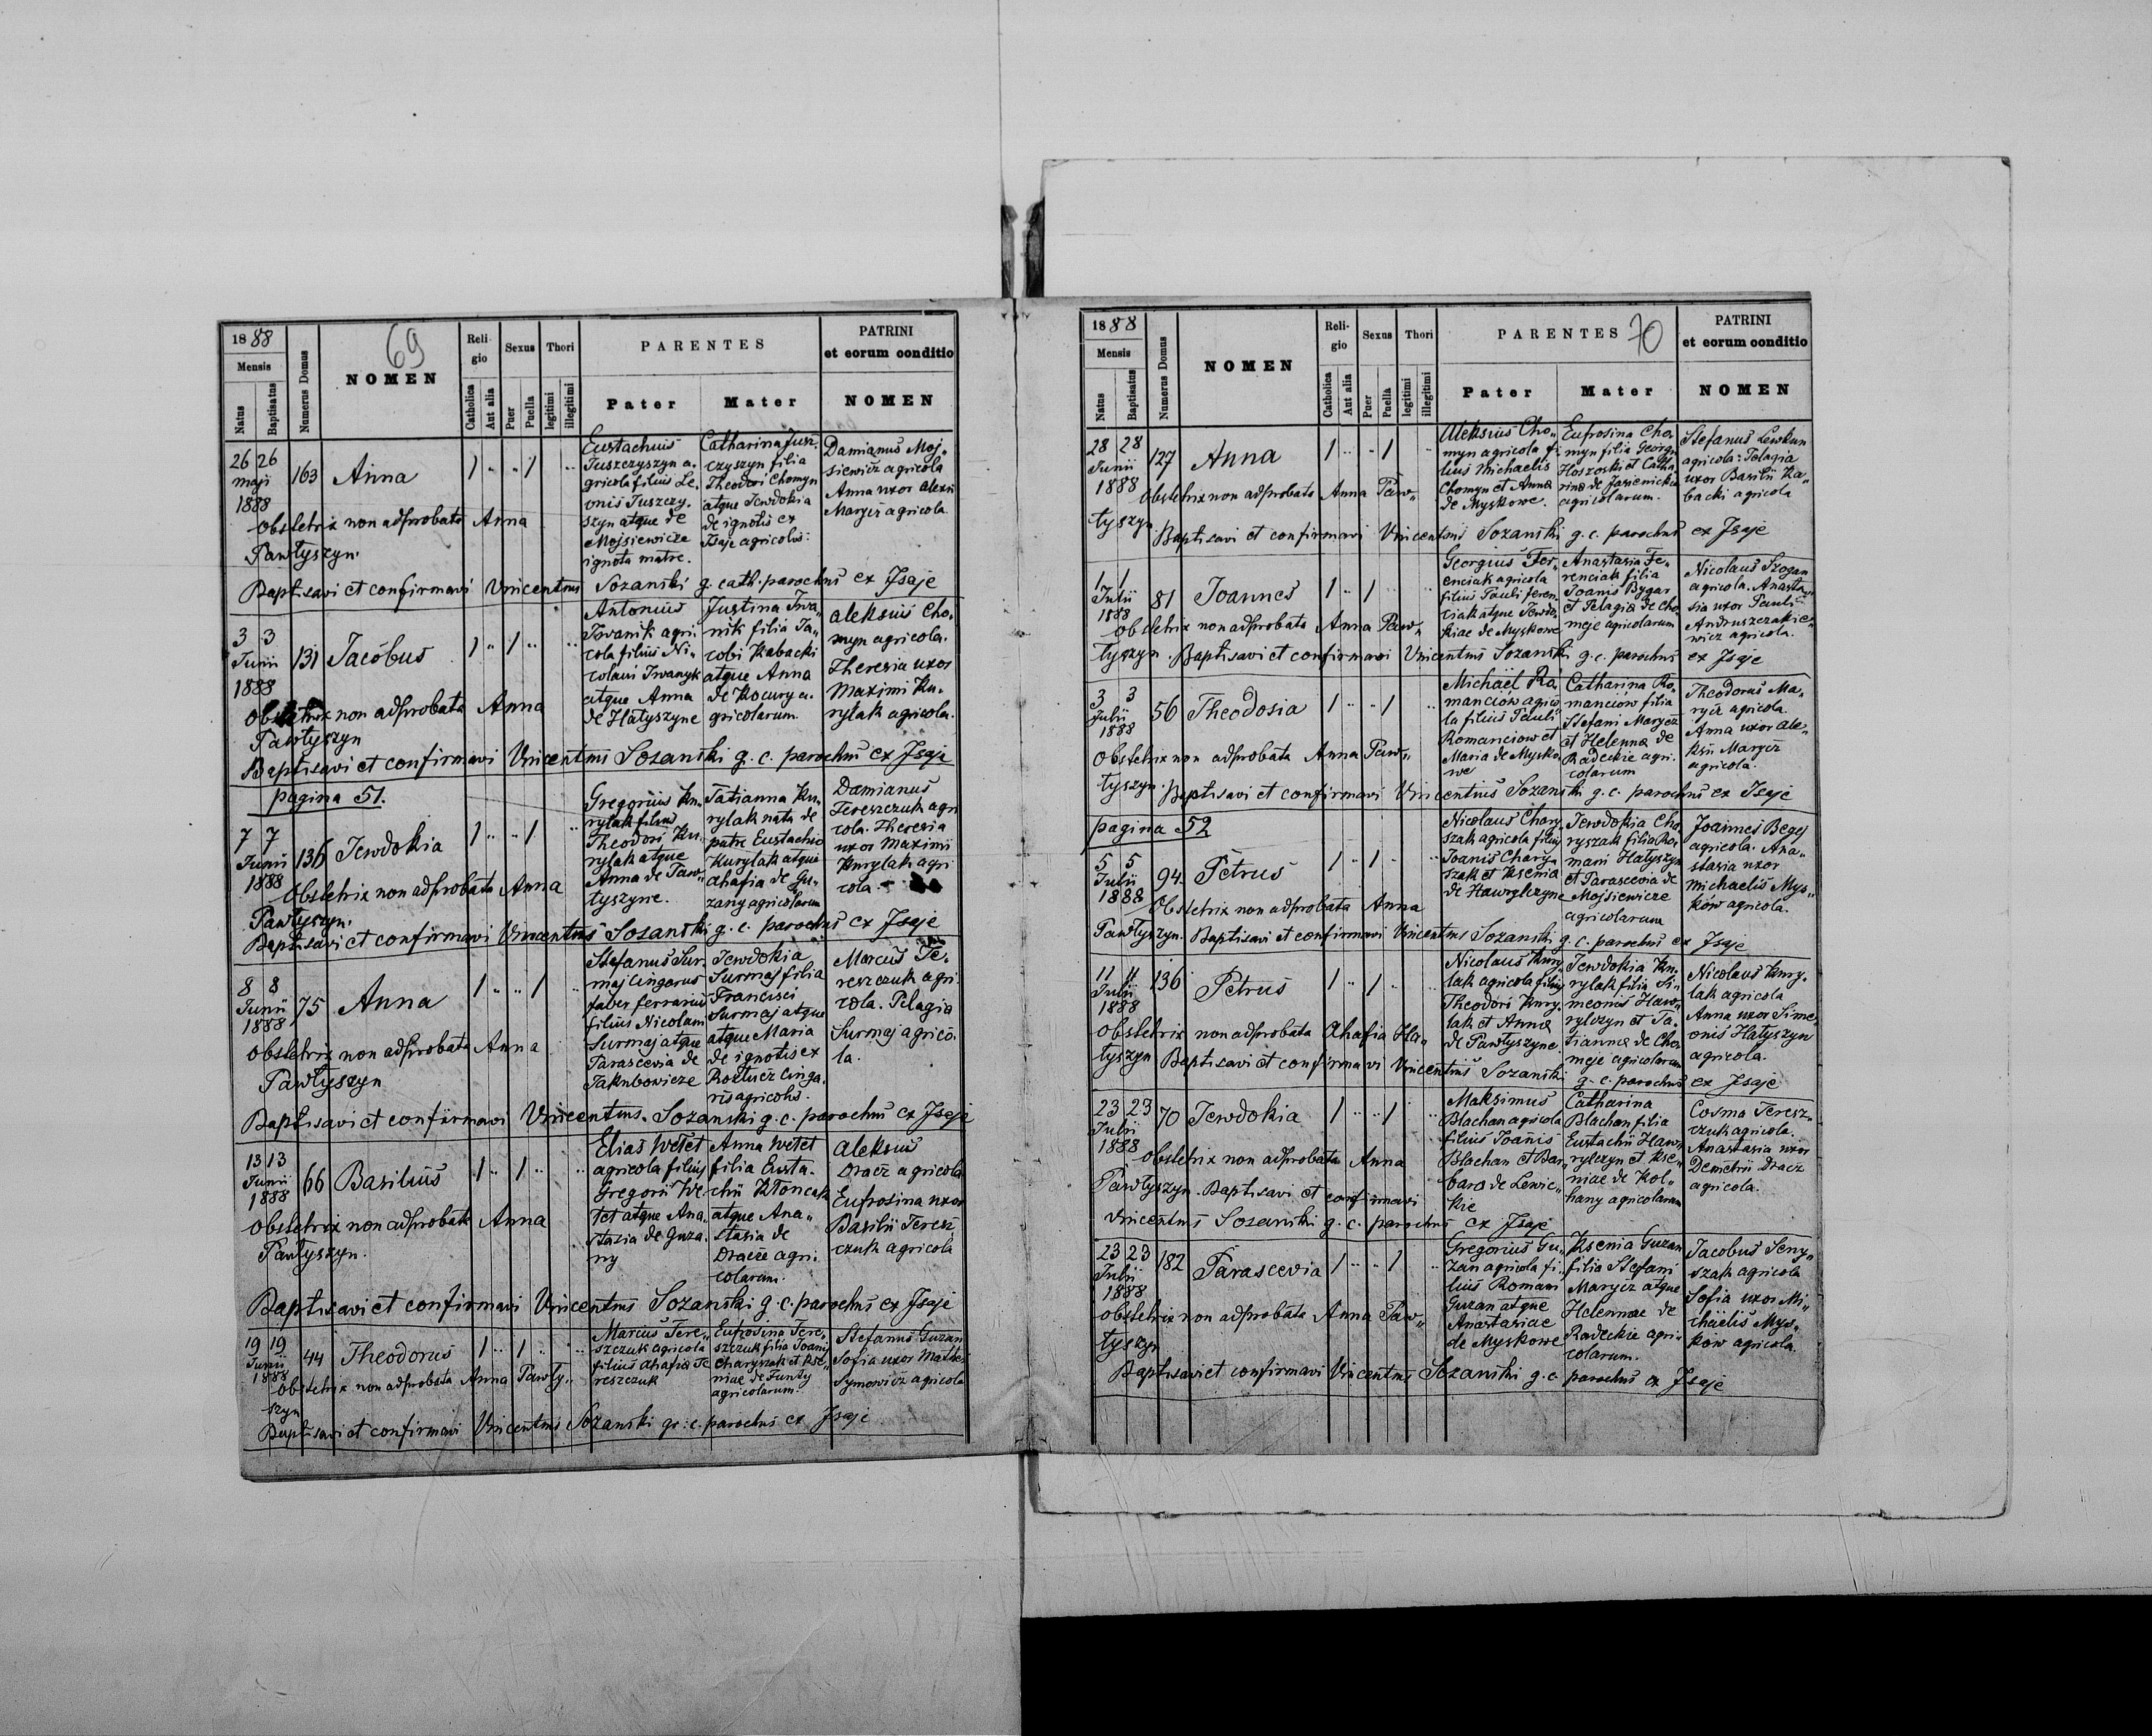 1888
69
Mensis
Natus
Baptisatus
Numerus Domus
NOMEN
Reli-
gio
Catholica
Aut alia
Sexus
Puer
Puella
Thori
legitimi
illegitimi
PARENTES
Pater
Mater
PATRINI
et eorum conditio
NOMEN
26 26
maji
1888
163
Anna
1 .. .. 1 ..
Eustachius
Juszczyszyn a-
gricola filius Le-
onis Juszczy-
szyn atque de
Mojsiewicze
ignota matre.
Catharina Jusz-
czyszyn filia
Theodori Chomyn
atque Jewdokia
de ignotis ex
Isaje agricolis:
Damianus Moj-
siewicz agricola
Anna uxor Alexii
Marycz agricola
Obstetrix non adprobata Anna
Pawłyszyn.
Baptisavi et confirmavi Vincentius Sozański g. cath. parochus ex Isaje
3 3
Junii
1888
131
Jacobus
1 .. 1 .. ..
Antonius
Iwanik agri-
cola filius Ni-
colaui Iwanyk
atque Anna
de Hałyszyne
Justina Iwa-
nik filia Ja-
cobi Kabacki
atque Anna
de Kocury a-
gricolarum.
Aleksius Cho-
myn agricola.
Theresia uxor
Maximi Ku-
rylak agricola.
Obstetrix non adprobata Anna
Pawłyszyn
Baptisavi et confirmavi Vincentius Sozański g. c. parochus ex Isaje
pagina 51.
7 7
Junii
1888
136
Jewdokia
1 .. .. 1 ..
Gregorius Ku-
rylak filius
Theodori Ku-
rylak atque
Anna de Paw-
łyszyne.
Tatianna Ku-
rylak nata de
patre Eustachio
Kurylak atque
Ahafia de Gu-
zany agricolarum
Damianus
Tereszczuk agri
cola. Theresia
uxor Maximi
Kurylak agri
cola
Obstetrix non adprobata Anna
Pawłyszyn.
Baptisavi et confirmavi Vincentius Sozański g. c. parochus ex Isaje
8 8
Junii
1888
75
Anna
1 .. .. 1 ..
Stefanus Sur-
maj Cingarus
faber ferrarius
filius Nicolaui
Surmaj atque
Parascevia de
Jakubowicze
Jewdokia
Surmaj filia
Francisci
Surmaj atque
atque Maria
de ignotis ex
Roztucz Cinga-
ris agricolis.
Marcus Te-
reszczuk agri-
cola. Pelagia
Surmaj agrico-
la.
Obstetrix non adprobata Anna
Pawłyszyn
Baptisavi et confirmavi Vincentius Sozański g. c. parochus ex Isaje
13 13
Junii
1888
66
Basilius
1 .. 1 .. ..
Elias Wetet
agricola filius
Gregorii We-
tet atque Ana-
stazia de Guza-
ny
Anna Wetet
filia Eusta-
chii
atque Ana-
stasia de
Dracze agri-
colarum.
Aleksius
Dracz agricola
Eufrosina uxor
Basilii Teresz-
czuk agricola
Obstetrix non adprobata Anna
Pawłyszyn.
Baptisavi et confirmavi Vincentius Sozański g. c. parochus ex Isaje
19 19
Junii
1888
44
Theodorus
1 .. 1 .. ..
Marcus Tere-
szczuk agricola
filius Ahafia Te
reszczuk
Eufrosina Tere-
szczuk filia Joanis
Charyszak et Kse-
niae de Funty
agricolarum.
Stefanus Guzan
Sofia uxor Mathei
Symowicz agricola
Obstetrix non adprobata Anna Pawły-
szyn
Baptisavi et confirmavi Vincentius Sozański gr: c. parochus ex Isaje
1888
70
Mensis
Natus
Baptisatus
Numerus Domus
NOMEN
Reli-
gio
Catholica
Aut alia
Sexus
Puer
Puella
Thori
legitimi
illegitimi
PARENTES
Pater
Mater
PATRINI
et eorum conditio
NOMEN
28 28
Junii
1888
127
Anna
1 .. .. 1 ..
Aleksius Cho-
myn agricola fi-
lius Michaelis
Chomyn et Anna
de Myskowe.
Eufrosina Cho-
myn filia Georgii
Hoszoski et Catha
rina de Jasienickie
agricolarum.
Stefanus Lewkun
agricola. Pelagia
uxor Basilii Ka-
backi agricola
Obstetrix non adprobata Anna Paw-
łyszyn.
Baptisavi et confirmavi Vincentius Sozański g. c. parochus ex Isaje
1 1
Julii
1888
81
Joannes
1 .. 1 .. ..
Georgius Fer-
enciak agricola
filius Pauli Feren-
ciak atque Jewdo-
kiae de Myskowe
Anastasia Fe-
renciak filia
Joanis Bygar
et Pelagia de Cho
meje agricolarum
Nicolaus Szogan
agricola. Anasta-
sia uxor Pauli
Andruszczakie-
wicz agricola.
Obstetrix non adprobata Anna Paw-
łyszyn. Baptisavi et confirmavi Vincentius Sozański g. c. parochus ex Isaje
3 3
Julii
1888
56
Theodosia
1 .. .. 1 ..
Michael Ro-
manciów agrico-
la filius Pauli
Romanciow et
Maria de Mysko-
we
Catharina Ro-
manciów filia
Stefani Marycz
et Helenna de
Radeckie agri-
colarum
Theodorus Ma-
rycz agricola.
Anna uxor Ale-
ksii Marycz
agricola.
Obstetrix non adprobata Anna Paw-
łyszyn. Baptisavi et confirmavi Vincentius Sozański g. c. parochus ex Isaje
pagina 52
5 5
Julii
1888
94.
Petrus
1 .. 1 .. ..
Nicolaus Chary-
szak agricola filius
Joanis Chary-
szak et Ksenia
de Hawrylczyne
Jewdokia Cha
ryszak filia Ro-
mani Hałyszyn
et Parascevia de
Mojsiewicze
agricolarum
Joannes Begej
agricola. Ana-
stasia uxor
Michaelis Mys-
ków agricola.
Obstetrix non adprobata Anna
Pawłyszyn. Baptisavi et confirmavi Vincentius Sozański g. c. parochus ex Isaje
11 11
Julii
1888
136
Petrus
1 .. 1 .. ..
Nicolaus Kury-
lak agricola filius
Theodori Kury-
lak et Anna
de Pawłyszyne.
Jewdokia Ku-
rylak filia Si-
meonis Haw-
rylczyn et Ta-
tianna de Cho-
meje agricolarum
Nicolaus Kury-
lak agricola
Anna uxor Sime-
onis Hałyszyn
agricola.
Obstetrix non adprobata Ahafia Ha-
łyszyn Baptisavi et confirmavi Vincentius Sozański g. c. parochus ex Isaje
23 23
Julii
1888
70
Jewdokia
1 .. .. 1 ..
Maksimus
Blachan agricola
filius Joanis
Blachan et Bar-
bara de Lewic-
kie
Catharina
Blachan filia
Eustachii Haw-
rylczyn et Kse-
niae de Kol-
hany agricolarum
Cosma Teresz-
czuk agricola.
Anastasia uxor
Demetrii Dracz
agricola.
Obstetrix non adprobata Anna
Pawłyszyn. Baptisavi et confirmavi
Vincentius Sozański g. c. parochus ex Isaje
23 23
Julii
1888
182
Parascevia
1 .. .. 1 ..
Gregorius Gu-
zan agricola fi-
lius Romani
Guzan atque
Anastasiae
de Myskowe
Ksenia Guzan
filia Stefani
Marycz atque
Helennae de
Radeckie agri-
colarum.
Jacobus Seny-
szak agricola
Sofia uxor Mi-
chaelis Mys-
ków agricola.
Obstetrix non adprobata Anna Paw-
łyszyn
Baptisavi et confirmavi Vincentius Sozański g. c. parochus ex Isaje